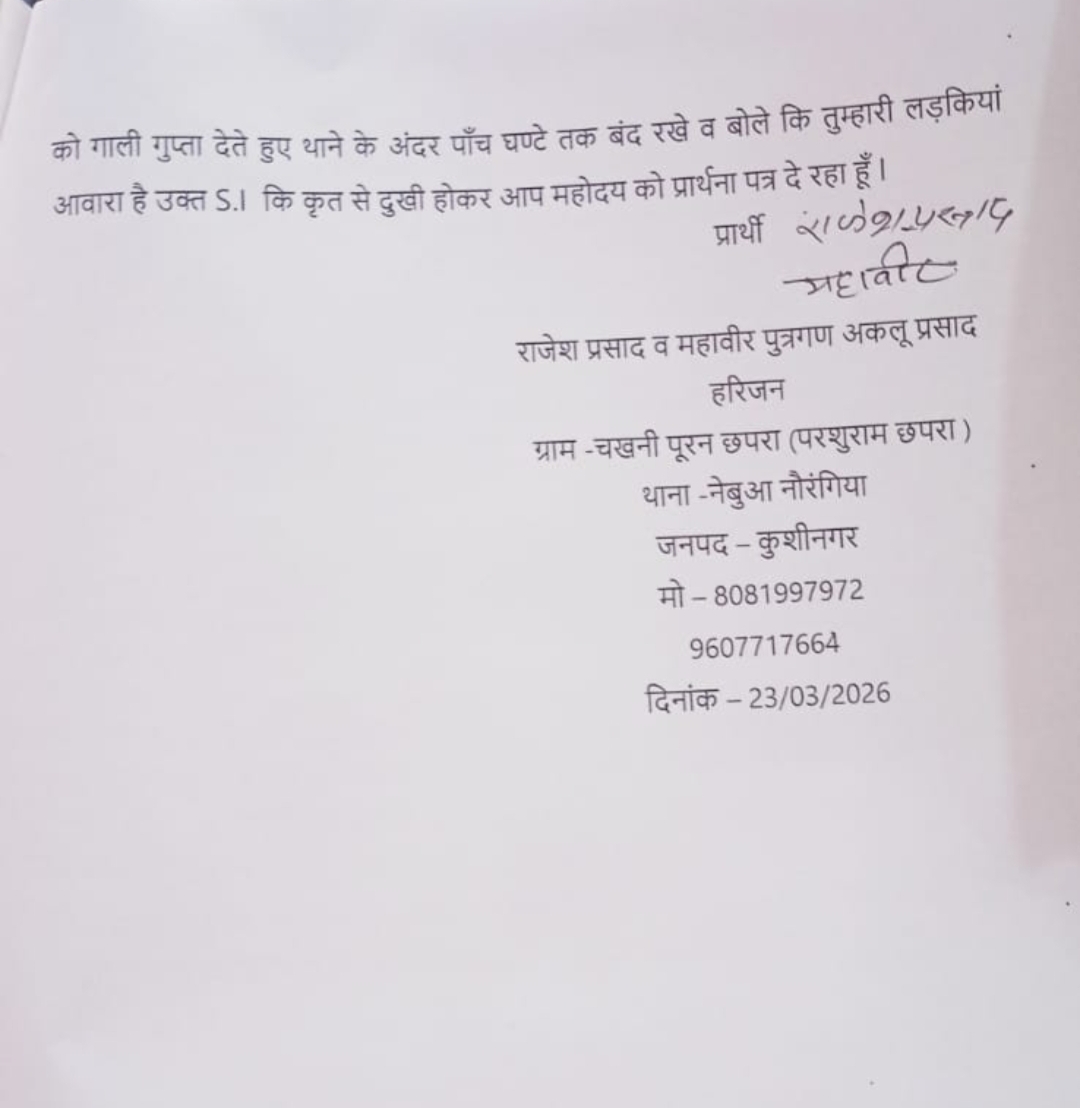 को गाली गुप्ता देते हुए थाने के अंदर पाँच घण्टे तक बंद रखे व बोले कि तुम्हारी लड़कियां
आवारा है उक्त S.I कि कृत से दुखी होकर आप महोदय को प्रार्थना पत्र दे रहा हूँ।
प्रार्थी राजेश प्रसाद
महावीर
राजेश प्रसाद व महावीर पुत्रगण अकलू प्रसाद
हरिजन
ग्राम -चखनी पूरन छपरा (परशुराम छपरा )
थाना -नेबुआ नौरंगिया
जनपद – कुशीनगर
मो – 8081997972
9607717664
दिनांक – 23/03/2026